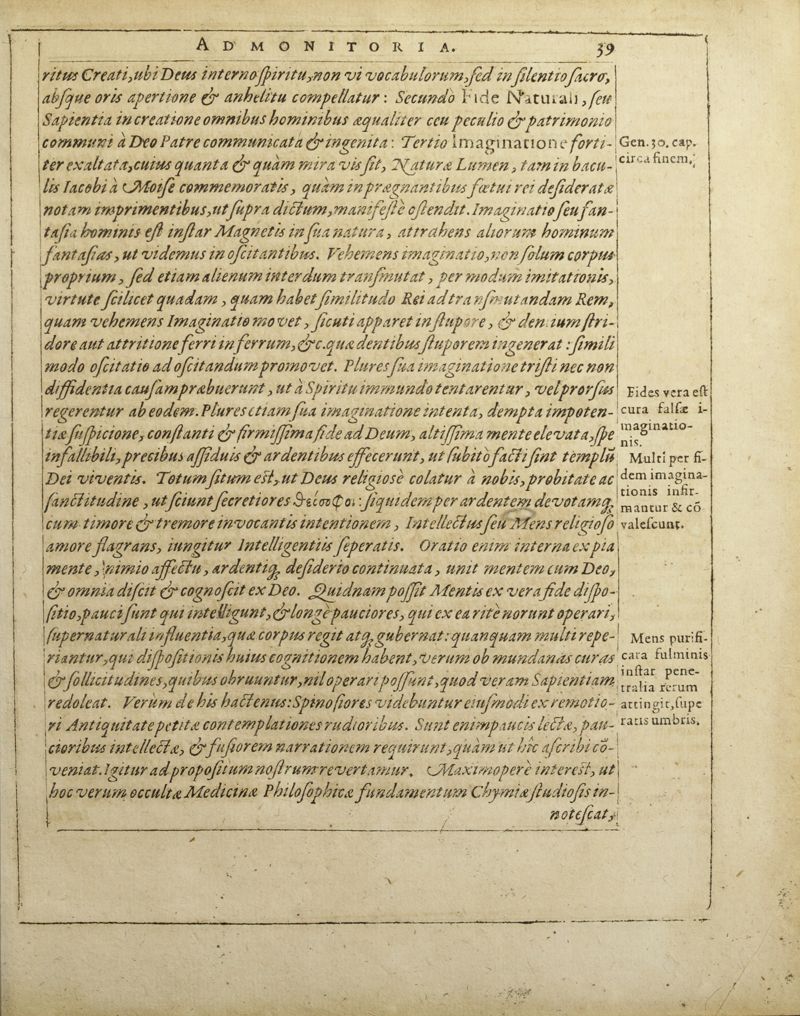 ADMONITORIA. 39
ritus Creati,ubi Deus interno ſpiritu,non vi vocabulorum,ſed in ſilentio ſacro,
abſque oris apertione & anhelitu compellatur: Secundò Fide Naturali,ſeu
Sapientia in creatione omnibus hominibus æqualiter ceu peculio & patrimonio
communi à Deo Patre communicata & ingenita: Tertio Imaginatione forti-
ter exaltata,cuius quanta & quàm mira vis ſit, Naturæ Lumen, tam in bacu-
lis Iacobi à Moiſe commemoratis, quàm in prægnantibus fœtui rei deſideratæ
notam imprimentibus,ut ſupra dictum,manifeſtè oſtendit.Imaginatio ſeu fan-
taſia hominis eſt inſtar Magnetis in ſua natura, attrahens aliorum hominum
fantaſias, ut videmus in oſcitantibus. Vehemens imaginatio,non ſolum corpus
proprium, ſed etiam alienum interdum tranſmutat, per modum imitationis,
virtute ſcilicet quadam, quam habet ſimilitudo Rei ad tranſmutandam Rem,
quam vehemens Imaginatio movet, ſicuti apparet in ſtupore, & dentium ſtri-
dore aut attritione ferri in ferrum,&c.quæ dentibus ſtuporem ingenerat: ſimili
modo oſcitatio ad oſcitandum promovet. Plures ſua imaginatione triſti nec non
diffidentia cauſam præbuerunt, ut à Spiritu immundo tentarentur, vel prorſus
regerentur ab eodem.Plures etiam ſua imaginatione intenta, dempta impoten-
tiæ ſuſpicione, conſtanti & firmiſſima fide ad Deum, altiſſima mente elevata,ſpe
infallibili,precibus aſſiduis & ardentibus effecerunt, ut ſubitò facti ſint templū
Dei viventis. Totum ſitum eſt,ut Deus religiosè colatur à nobis,probitate ac
ſanctitudine, ut ſciunt ſecretiores θεόσοφοι: ſiquidem per ardentem devotamq;
cum timore & tremore invocantis intentionem, Intellectus ſeu Mens religioſo
amore flagrans, iungitur Intelligentiis ſeperatis. Oratio enim interna ex pia
mente, nimio affectu, ardentiq; deſiderio continuata, unit mentem cum Deo,
& omnia diſcit & cognoſcit ex Deo. Quidnam poſſit Mentis ex vera fide diſpo-
ſitio,pauci ſunt qui intelligunt,& longè pauciores, qui ex ea ritè norunt operari,
ſupernaturali influentia,quæ corpus regit atq; gubernat: quanquam multi repe-
riantur,qui diſpoſitionis huius cognitionem habent,verum ob mundanas curas
& ſollicitudines,quibus obruuntur,nil operari poſſunt,quod veram Sapientiam
redoleat. Verum de his hactenus: Spinoſiores videbuntur eiuſmodi ex remotio-
ri Antiquitate petitæ contemplationes rudioribus. Sunt enim paucis lectæ, pau-
cioribus intellectæ, & fuſiorem narrationem requirunt,quàm ut hîc aſcribi cō-
veniat.Igitur ad propoſitum noſtrum revertamur. Maximopere intereſt, ut
hoc verum occultæ Medicinæ Philoſophicæ fundamentum Chymiæ ſtudioſis in-
noteſcat,
Gen.30.cap.
circa finem.
Fides vera eſt
cura falſæ i-
maginatio-
nis.
Multi per fi-
dem imagina-
tionis infir-
mantur & cō
valeſcunt.
Mens purifi-
cata fulminis
inſtar pene-
tralia rerum
attingit,ſupe
ratis umbris.